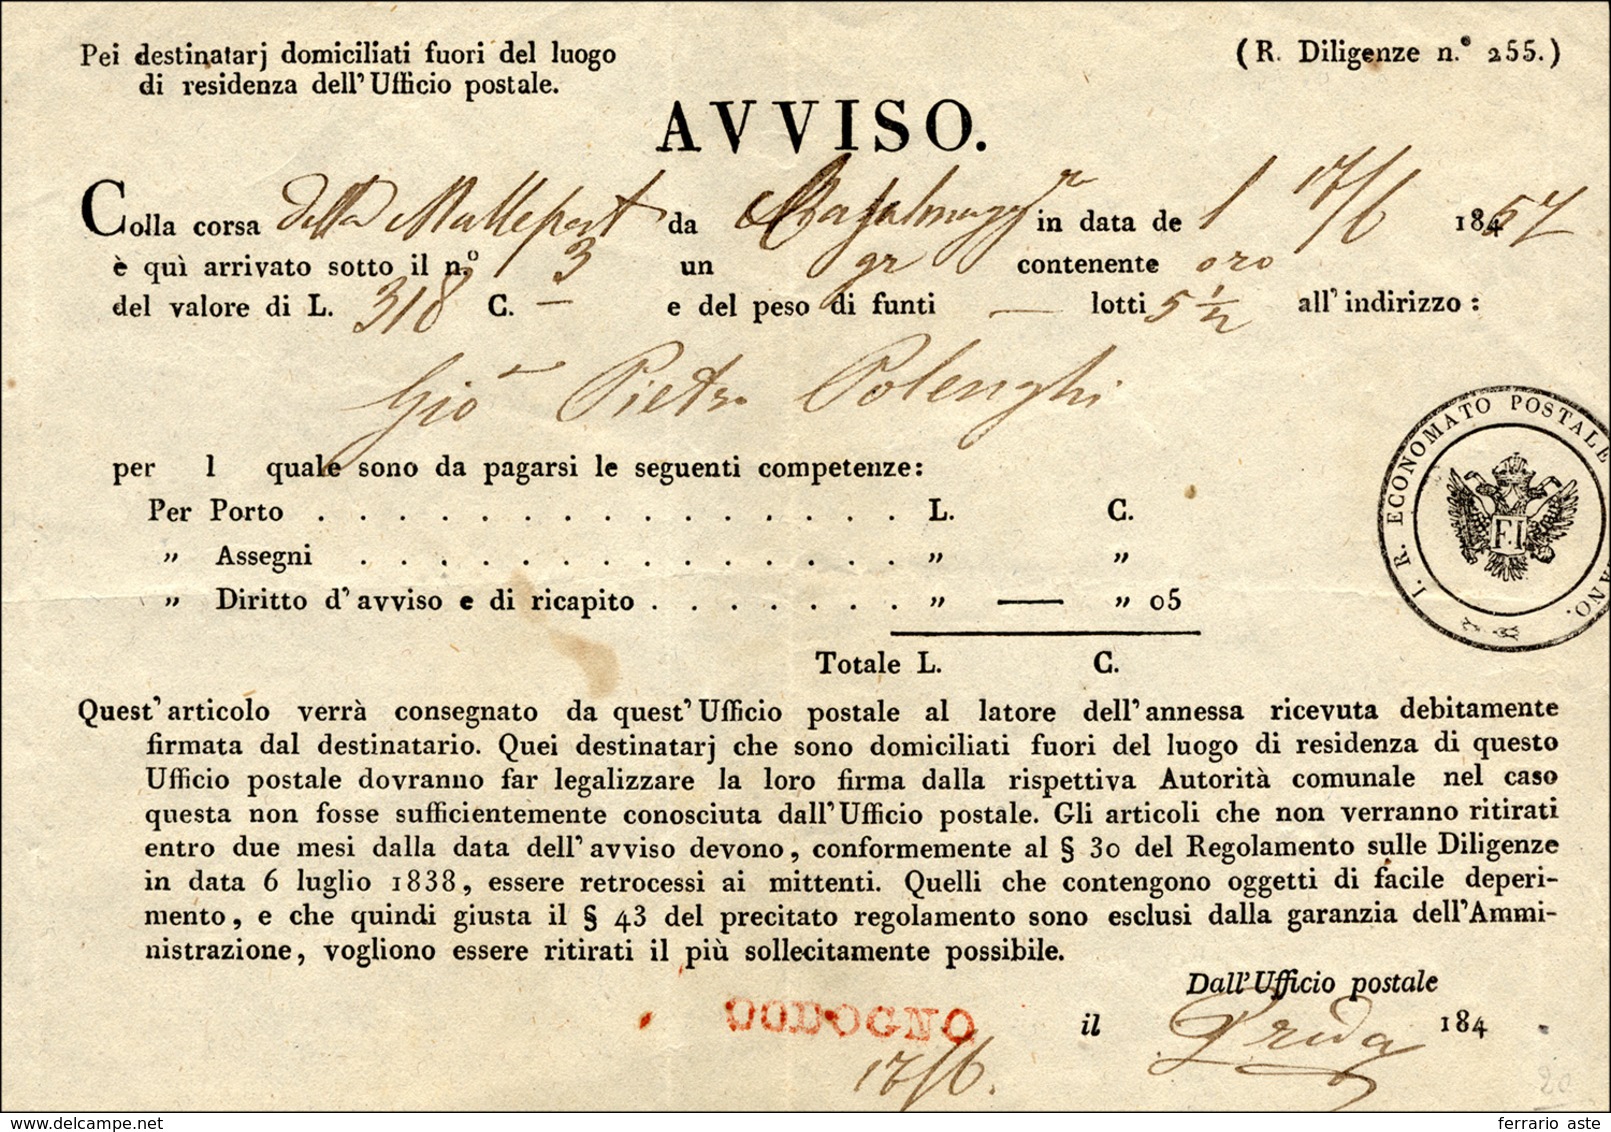 Pei destinatarj domiciliati fuori del luogo
di residenza dell' Ufficio postale.
(R. Diligenze n.° 255.)
AVVISO.
Colla corsa della Mallepost da Casalmagg.re in data de l 17/6 1857
è quì arrivato sotto il n.° 3 un gr contenente oro
del valore di L. 318 C. — e del peso di funti — lotti 5 1/2 all' indirizzo :
Gio Pietro Polenghi
per l quale sono da pagarsi le seguenti competenze:
Per Porto . . . . . . . . . . . . . . . . L. C.
„ Assegni . . . . . . . . . . . . . . „ „
„ Diritto d' avviso e di ricapito . . . . . . . „ — „ 05
Totale L. C.
I. R. ECONOMATO POSTALE ANO.
F.I.
Quest' articolo verrà consegnato da quest' Ufficio postale al latore dell' annessa ricevuta debitamente
firmata dal destinatario. Quei destinatarj che sono domiciliati fuori del luogo di residenza di questo
Ufficio postale dovranno far legalizzare la loro firma dalla rispettiva Autorità comunale nel caso
questa non fosse sufficientemente conosciuta dall' Ufficio postale. Gli articoli che non verranno ritirati
entro due mesi dalla data dell' avviso devono, conformemente al § 30 del Regolamento sulle Diligenze
in data 6 luglio 1838, essere retrocessi ai mittenti. Quelli che contengono oggetti di facile deperi-
mento, e che quindi giusta il § 43 del precitato regolamento sono esclusi dalla garanzia dell'Ammi-
nistrazione, vogliono essere ritirati il più sollecitamente possibile.
Dall' Ufficio postale
CODOGNO il 184
17/6.
20
ferrario aste